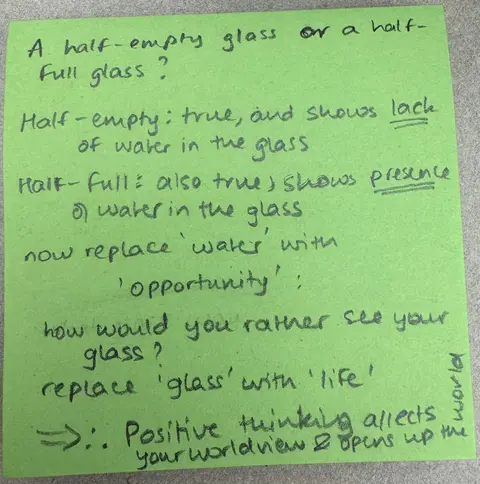 A half-empty glass or a half-
full glass?
Half-empty: true, and shows lack
of water in the glass
Half-full: also true, shows presence
of water in the glass
now replace 'water' with
'opportunity':
how would you rather see your
glass?
replace 'glass' with 'life'
⇒∴ Positive thinking affects
your worldview & opens up the world